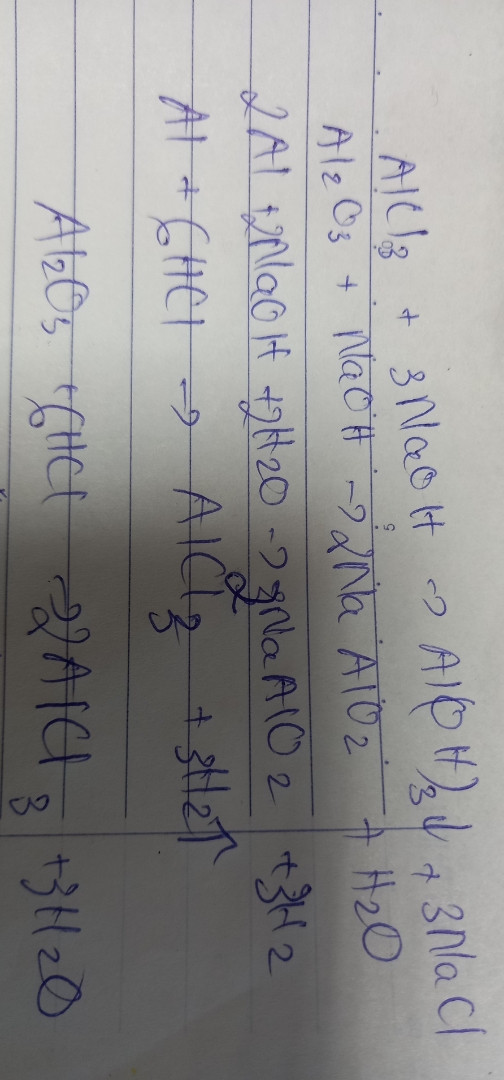 AlCl3 + 3NaOH -> Al(OH)3↓ + 3NaCl
Al2O3 + NaOH -> 2NaAlO2 + H2O
2Al + 2NaOH + 2H2O -> 2NaAlO2 + 3H2
Al + 6HCl -> AlCl3 + 3H2↑
Al2O3 + 6HCl -> 2AlCl3 + 3H2O